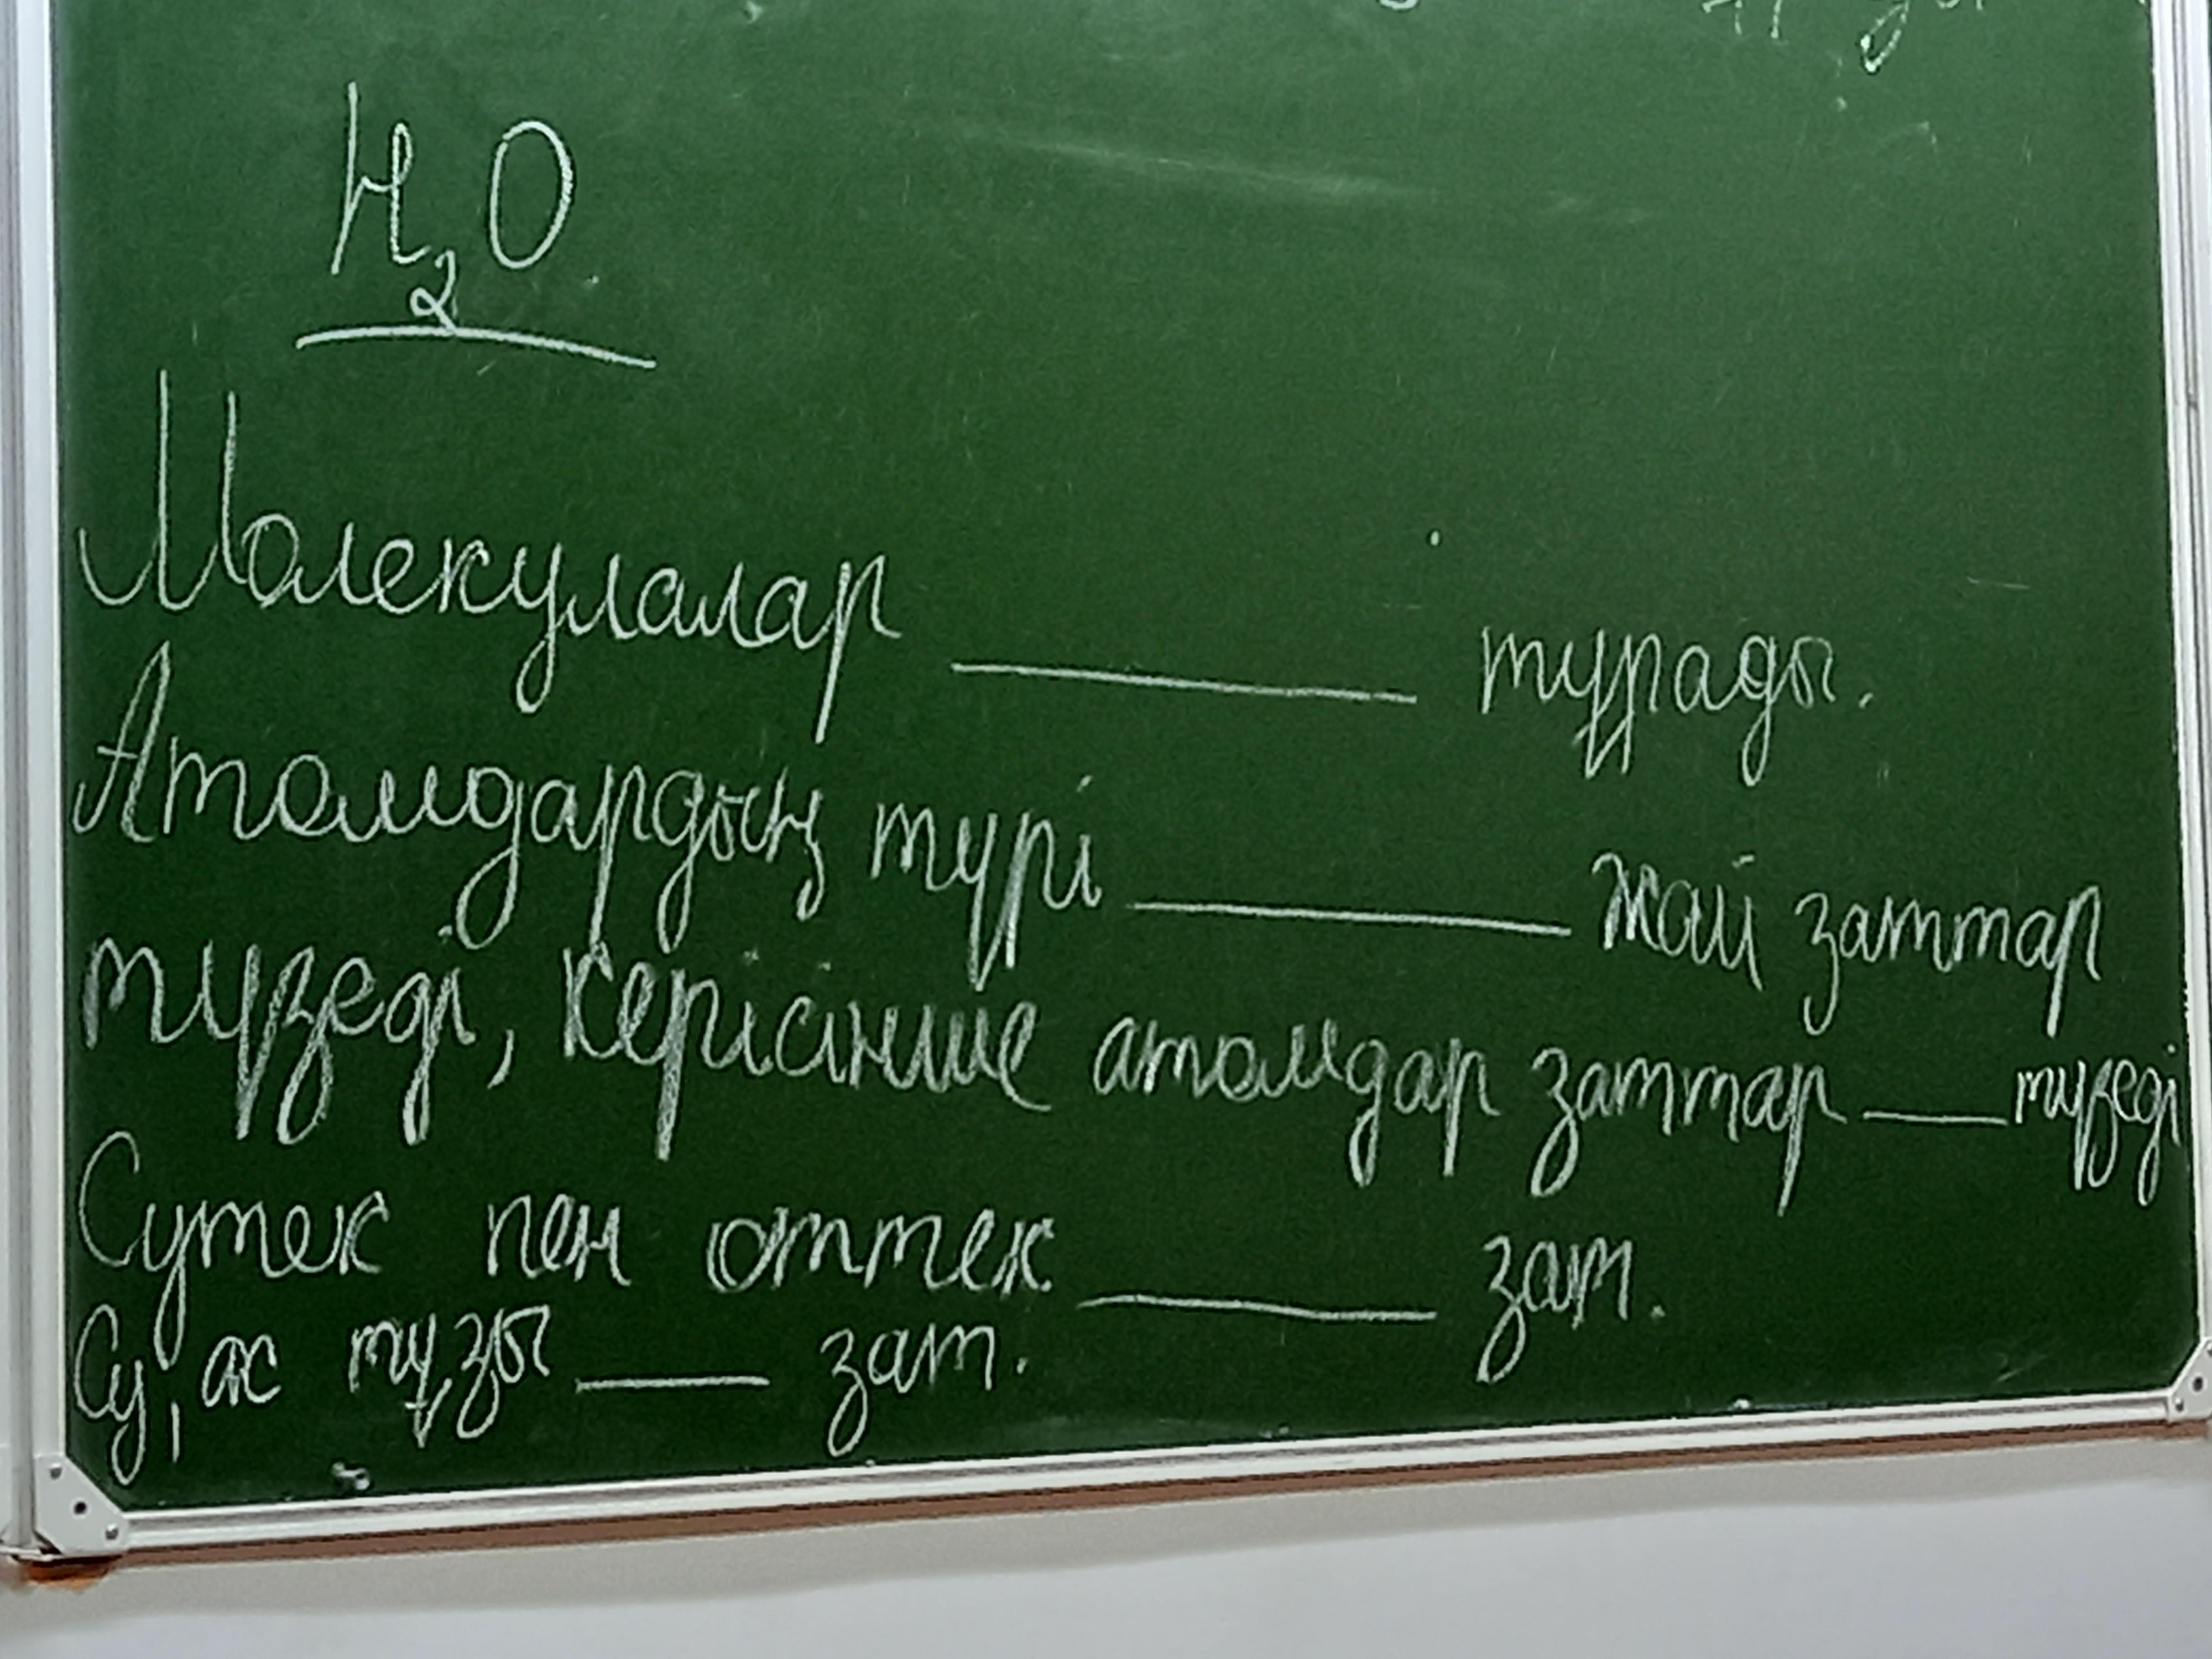 H₂O
Молекулалар ______ тұрады.
Атомдардың түрі ______ жай заттар
түзеді, керісінше атомдар заттар ___ түзеді
Сутек пен оттек ______ зат.
Су, ас тұзы ___ зат.